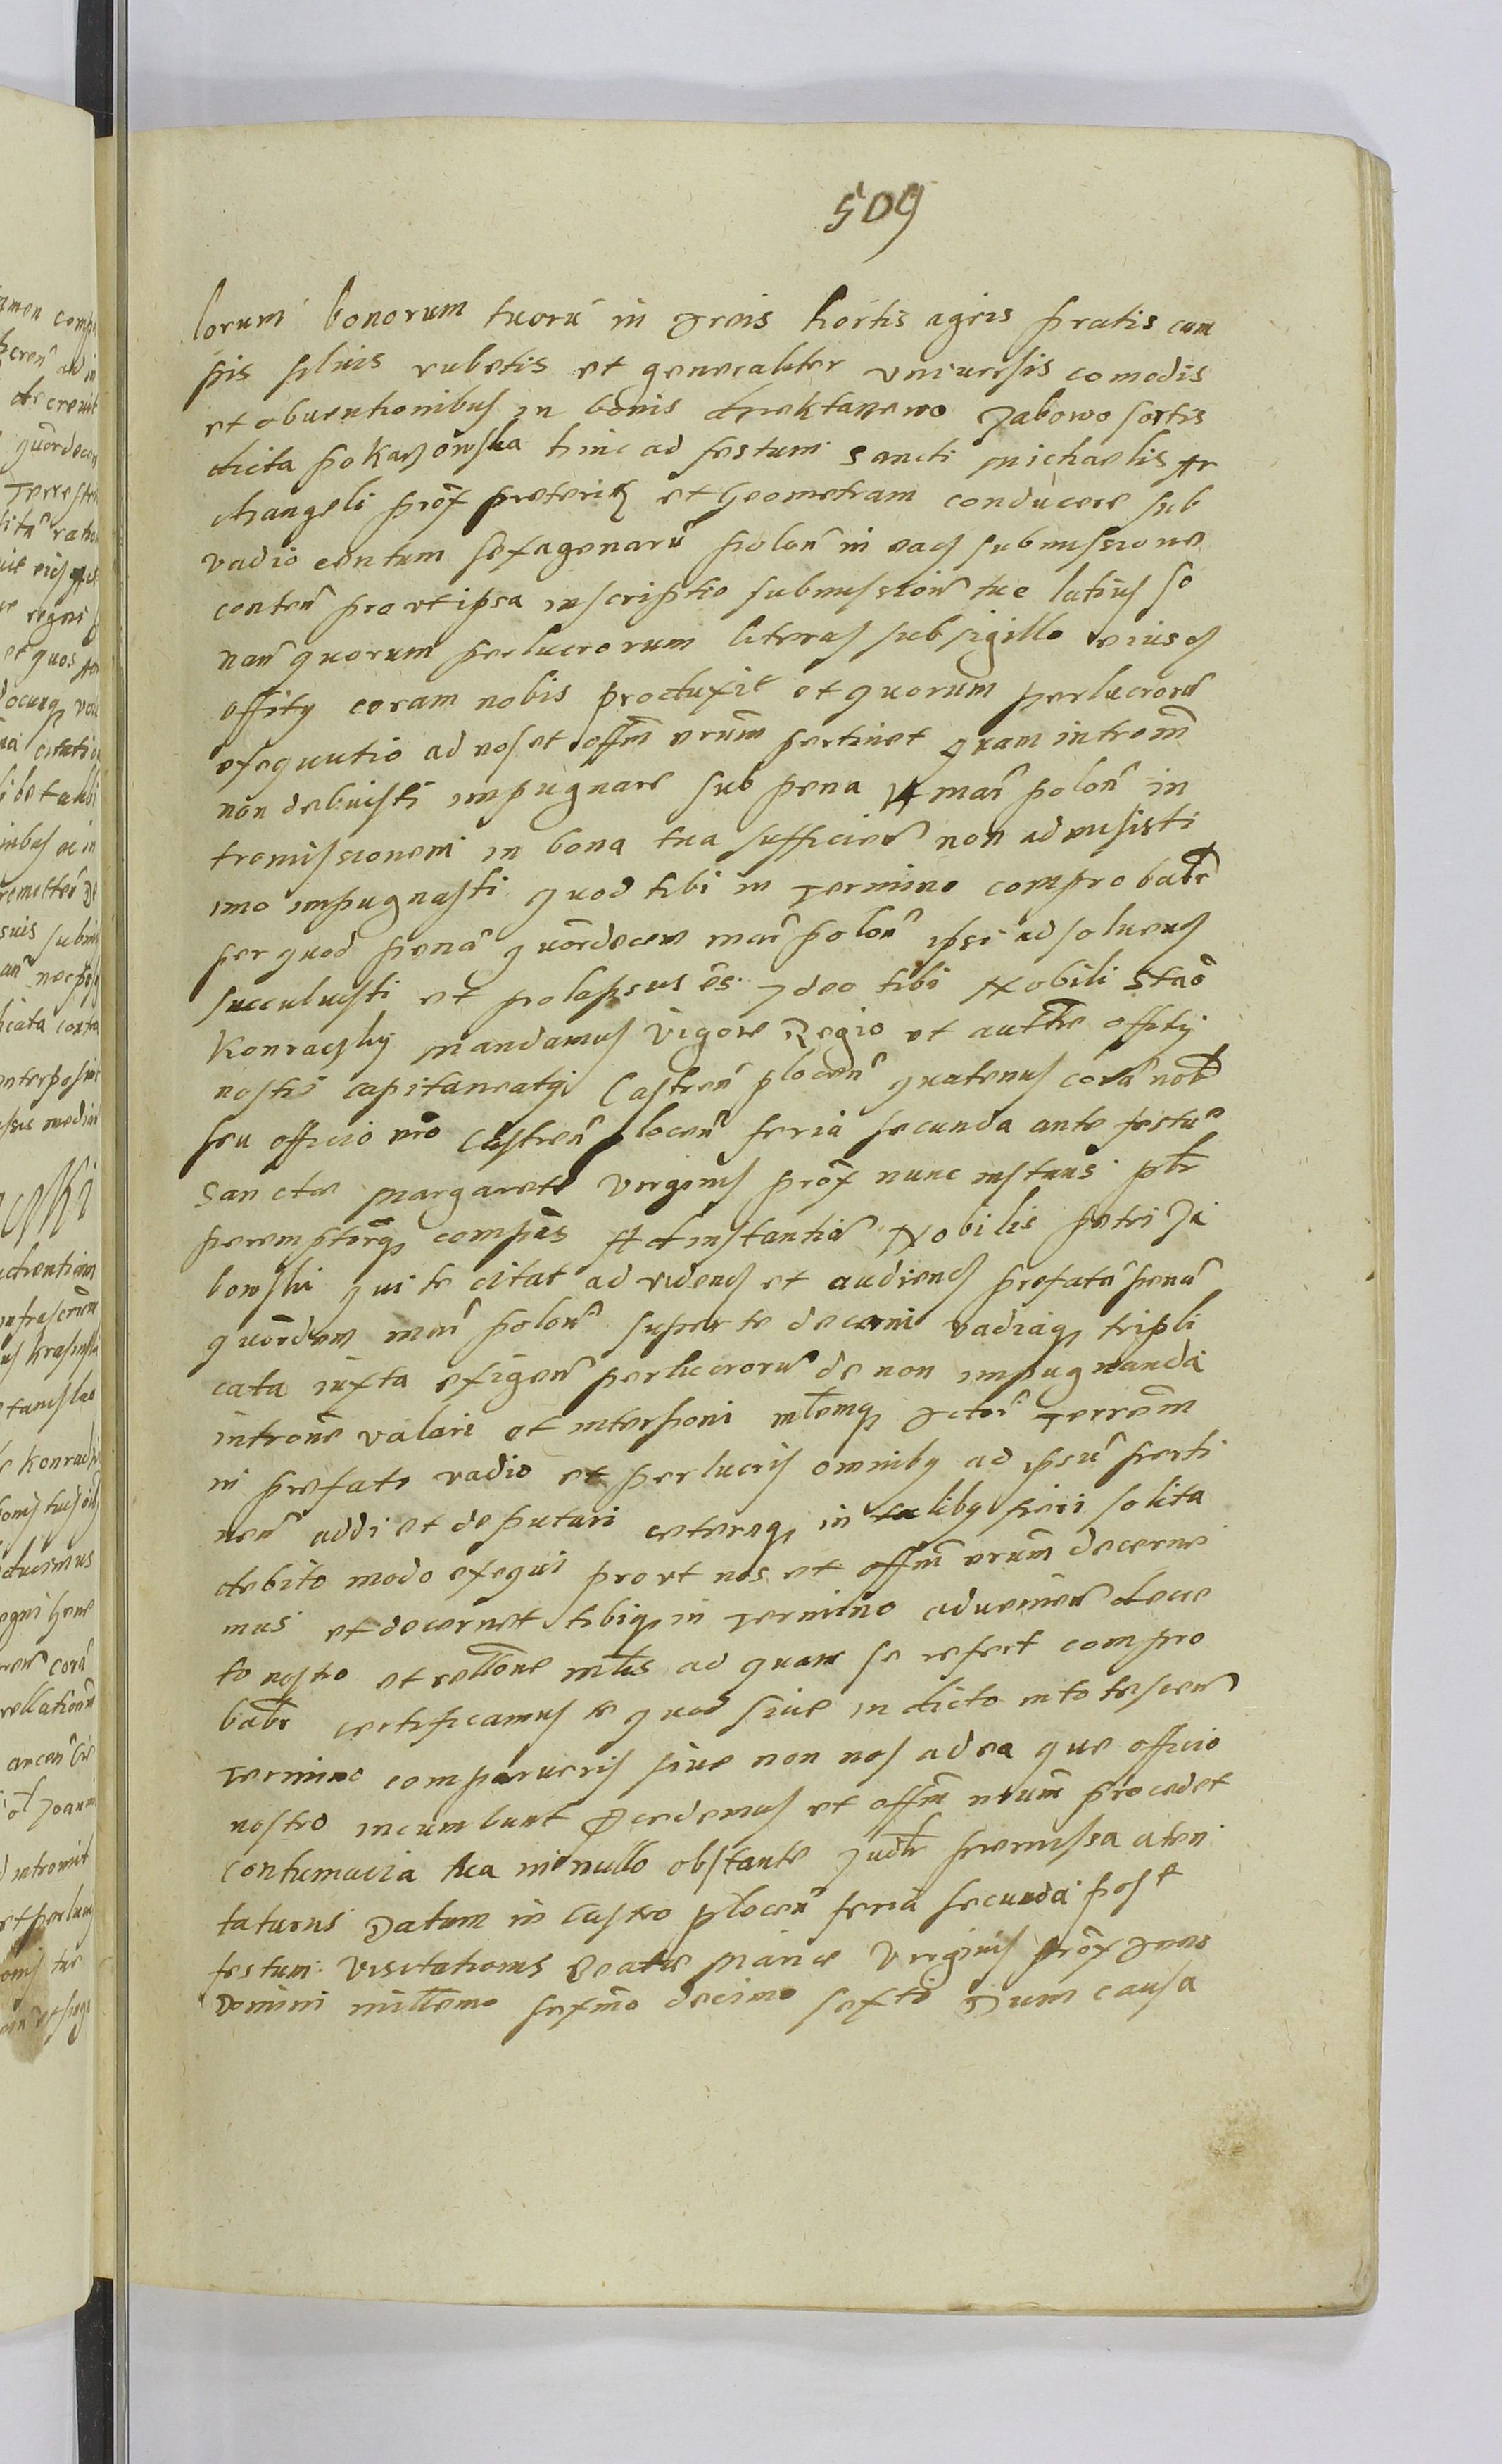 509
lorum bonorum tuorū in areis hortis agris pratis cam
pis siluis rubetis et generaliter vniuersis comodis
et obuentionibus in bonis Jabowo sortis
dicta hinc ad festum Sancti Michaelis Ar
changeli prox̄ preteriti et Geometram conducere sub
vadio centum sexagenarū polon̄ in eadem submissione
conten̄ prout ipsa inscriptio submission̄ tuae latius so
nan̄ quorum perlucrorum literas sub sigillo eiusdem
offity coram nobis produxit et quorum perlucrorū
exequutio ad nos et offm̄ nrūm pertinet quam introm̄
non debuisti impugnare sub pena 14 mar̄ polon̄ in
tromissionem in bona tua sufficien̄ non admisisti
imo impugnasti quod tibi in Termino comprobabr̄
per quod penā quōrdecem mar̄ polon̄ ipsi ad soluend
succubuisti et prolapsus es. Ideo tibi Nobili Staō
Konraczky Mandamus Vigore Regio et autħte offity
nostri capitaneatq Castren̄ plocen̄ quatenus corā nobis
seu officio nrō Castren̄ plocen̄ feria secunda ante festū
Sanctae Margarete Virginis prox̄ nunc instans pltr
peremptorq compas Ad instantiā Nobilis Petri Ja
bowski qui te citat ad videnď et audienď prefatā penā
quōrdem mar̄ polon̄ super te decerni vadiaq tripli
cata iuxta exigen̄ perlucrorū de non impugnanda
introm̄e valari et interponi mlt̄emq Actori Terrēm
in prefato vadio et perlucris omnibq ad ipsū perti
nen̄ addi et deputari ceteraq in talibq fieri solita
debito modo exequi prout nos et offm̄ nrūm decerne
mus et decernet tibiq in Termino aduenien̄ decre
to nostro et rellōne mlt̄is ad quam se refert compro
babr̄ certificamus te quod siue in dicto intotescen̄
Termino comparueris siue non nos ad ea que officio
nostro incumbunt p̄cedemus et offm̄ nrūm procedet
contumacia tua in nullo obstante Judtr premissa aten
taturus Datum in Castro plocen̄ feria secunda post
festum Visitationis Beatae Mariae Virginis prox̄ Anno
Domini millēmo sexmo decimo sexto Dum causa